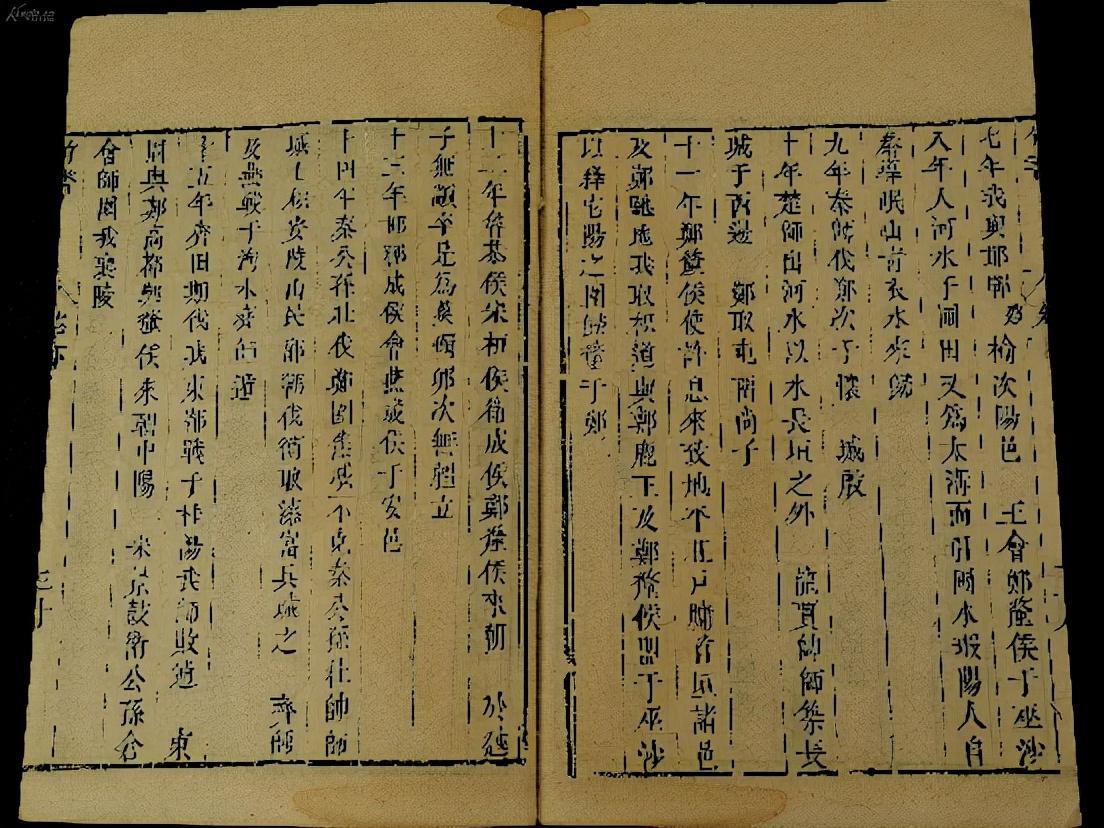 七年我與邯鄲 榆次陽邑 王會鄭釐侯于巫沙
八年入河水于圃田又為大溝而引圃水瑕陽人自
秦導岷山青衣水來歸
九年秦師伐鄭次于懷 城殷
十年楚師出河水以水長垣之外 龍賈帥師築長
城于西邊 鄭取屯留尚子
十一年鄭釐侯使許息來致地平丘戶牖首垣諸邑
及鄭馳地我取枳道與鄭鹿王及鄭釐侯盟于巫沙
以釋宅陽之圍歸釐于鄭
十二年魯恭侯宋桓侯衛成侯鄭釐侯來朝 於越
子無顓卒是為菼蠋卯次無疆立
十三年邯鄲成侯會燕成侯于安邑
十四年秦公孫壯伐鄭圍焦城不克秦公孫壯帥師
城上枳安陵山民邯鄲伐衛取漆富丘城之 齊師
及燕戰于泃水齊師遁
十五年齊田期伐我東鄙戰于桂陽我師敗逋 東
周與鄭高都鄭釐侯來朝中陽 宋景𢾺衛公孫倉
會師圍我襄陵
竹書 卷下